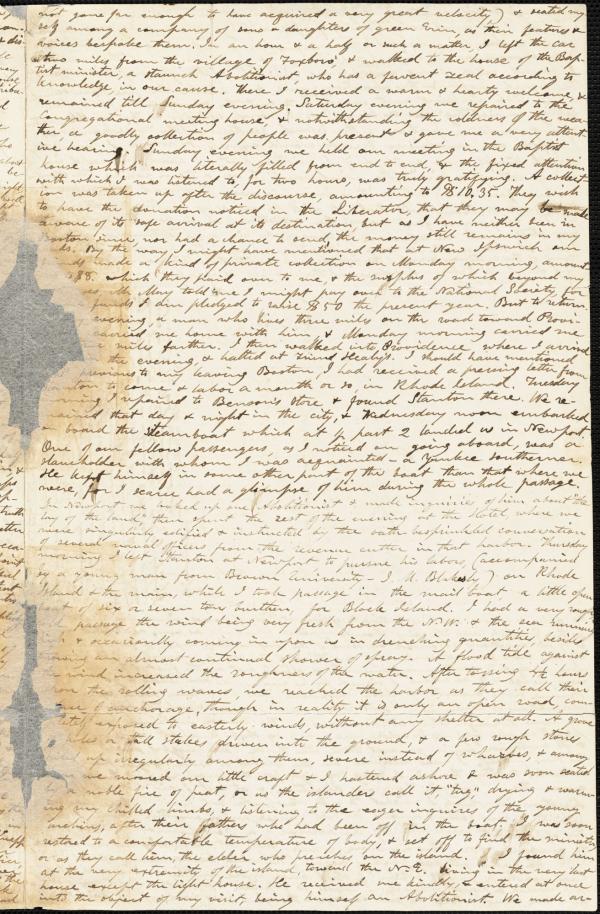 not gone far enough to have acquired a very great velocity) & seated my
self among a company of sons & daughters of green Erin, as their features &
voices bespoke them. In an hour & a half or such a matter, I left the car
two miles from the village of Foxboro' & walked to the house of the Bap-
tist minister, a staunch Abolitionist, who has a fervent zeal according to
knowledge in our cause. There I received a warm & hearty welcome, &
remained till Sunday evening. Saturday evening we repaired to the
Congregational meeting house, & notwithstanding the coldness of the wea-
ther a goodly collection of people was present & gave me a very attent
ive hearing. Sunday evening we held our meeting in the Baptist
house which was literally filled from end to end, & the fixed attention
with which I was listened to, for two hours, was truly gratifying. A collect
ion was taken up after the discourse, amounting to $10,35. They wish
to have the donation noticed in the Liberator, that they may be made
aware of its safe arrival at its destination, but as I have neither been in
Boston since, nor had a chance to send, the money still remains in my
By the way, I might have mentioned that at New Ipswich our
made a kind of private collection on Monday morning, amount
$8. which they paid over to me & the surplus of which beyond my
Mr May told me I might pay over to the National Society, for
funds I am pledged to raise $50 the present year. But to return.
evening a man who lives three miles on the road toward Provi-
carried me home with him & Monday morning carried me
miles farther. I then walked into Providence where I arrived
the evening, & halted at friend Healy's. I should have mentioned
previous to my leaving Boston I had received a pressing letter from
to come & labor a month or so, in Rhode Island. Tuesday
morning I repaired to Benson's store & found Stanton there. We re-
mained that day & night in the city, & Wednesday noon embarked
board the steamboat which at ½ past 2 landed us in Newport.
One of our fellow passengers, as I noticed on going aboard, was a
slaveholder with whom I was acquainted, a Yankee southerner.
He kept himself in some other part of the boat than that where we
were, for I scarce had a glimpse of him during the whole passage.
In Newport we looked up one Abolitionist & made inquiries of him about the
lay of the land, then spent the rest of the evening at the Hotel where we
singularly edified & instructed by the oath besprinkled conversation
of several naval officers from the revenue cutter in that harbor. Thursday
morning I left Stanton at Newport to pursue his labors, (accompanied
by a young man from Brown University - ) on Rhode
Island & the main, while I took passage in the mail boat, a little open
boat of six or seven tons burthen, for Block Island. I had a very rough
passage the wind being very fresh from the N.W. & the sea running
high & occasionally coming in upon us in drenching quantities, beside
an almost continual shower of spray. A flood tide against
wind increased the roughness of the water. After tossing hours
on the rolling waves, we reached the harbor as they call their
of anchorage, though in reality it is only an open road, com
exposed to easterly winds, without any shelter at all. A grove
tall stakes driven into the ground, & a few rough stones
up irregularly among them, serve instead of wharves, & among
we moored our little craft & I hastened ashore & was soon seated
by a noble fire of peat, or as the islanders call it "tug" drying & warm-
ing my chilled limbs, & listening to the eager inquiries of the young
urchins, after their fathers who had been off in the boat. I was soon
restored to a comfortable temperature of body, & set off to find the minister
or as they call them, the elder, who preaches on the island. I found him
at the very extremity of the island, toward the N.E. living in the very last
house except the light house. He received me kindly & entered at once
into the object of my visit, being himself an Abolitionist. We made ar-